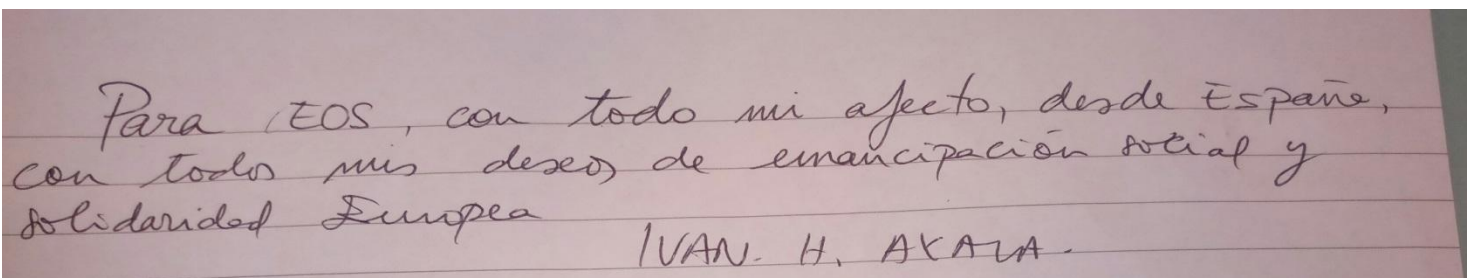 Para EOS, con todo mi afecto, desde España,
con todos mis deseos de emancipación social y
solidaridad Europea
IVAN. H. AYALA.